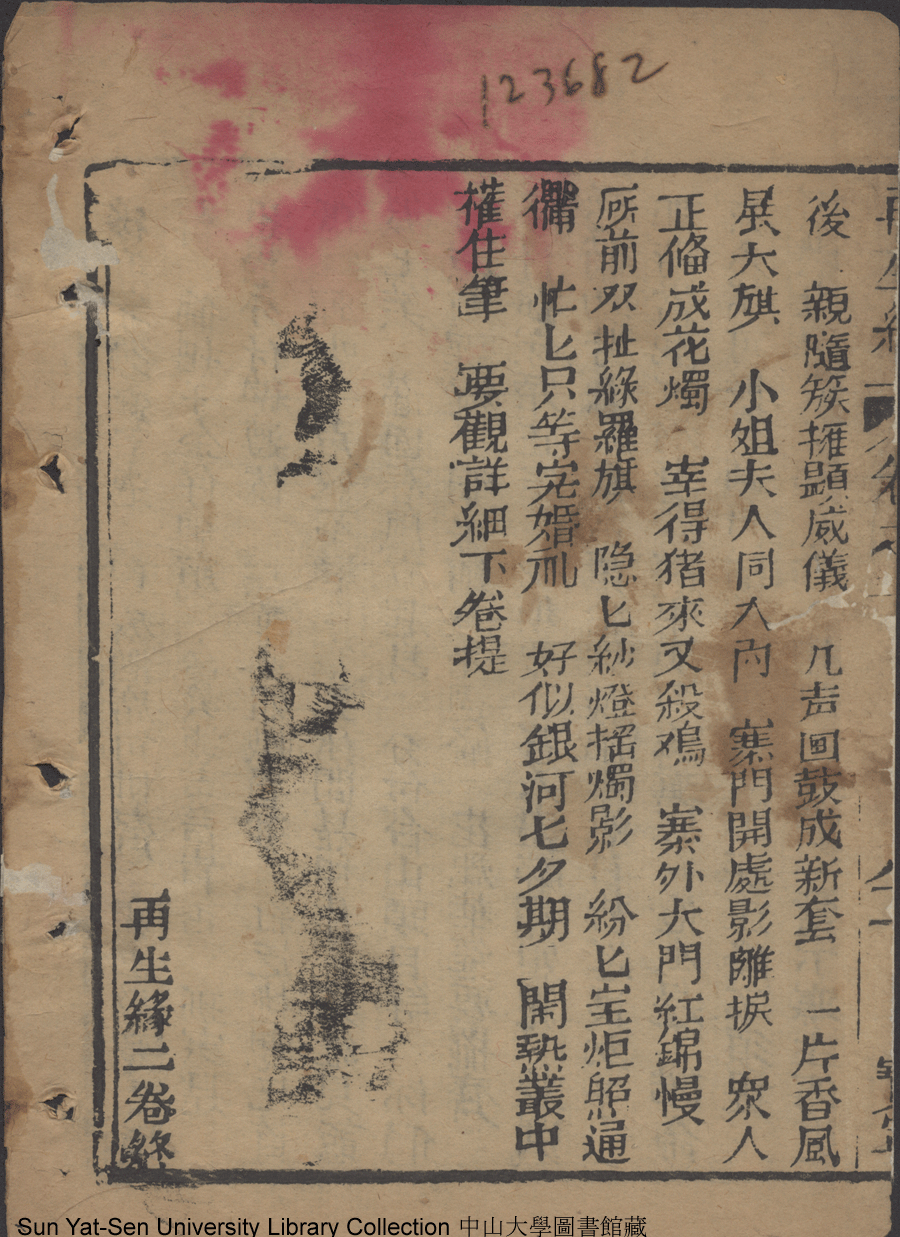 123682
後　親隨簇擁顕威儀　几声画鼓成新套　一片香風
展大旗　小姐夫人同入內　寨門開處影離捩　眾人
正俻成花燭　宰得猪來又殺鸡　寨外大門紅錦慢
㕔前双扯綠羅旗　隐匕紗燈揺燭影　紛匕宝炬照通
衢　忙匕只等完婚礼　好似銀河七夕期　閑热叢中
權住筆　要觀詳細下卷提
再生緣二卷終
Sun Yat-Sen University Library Collection 中山大學圖書館藏